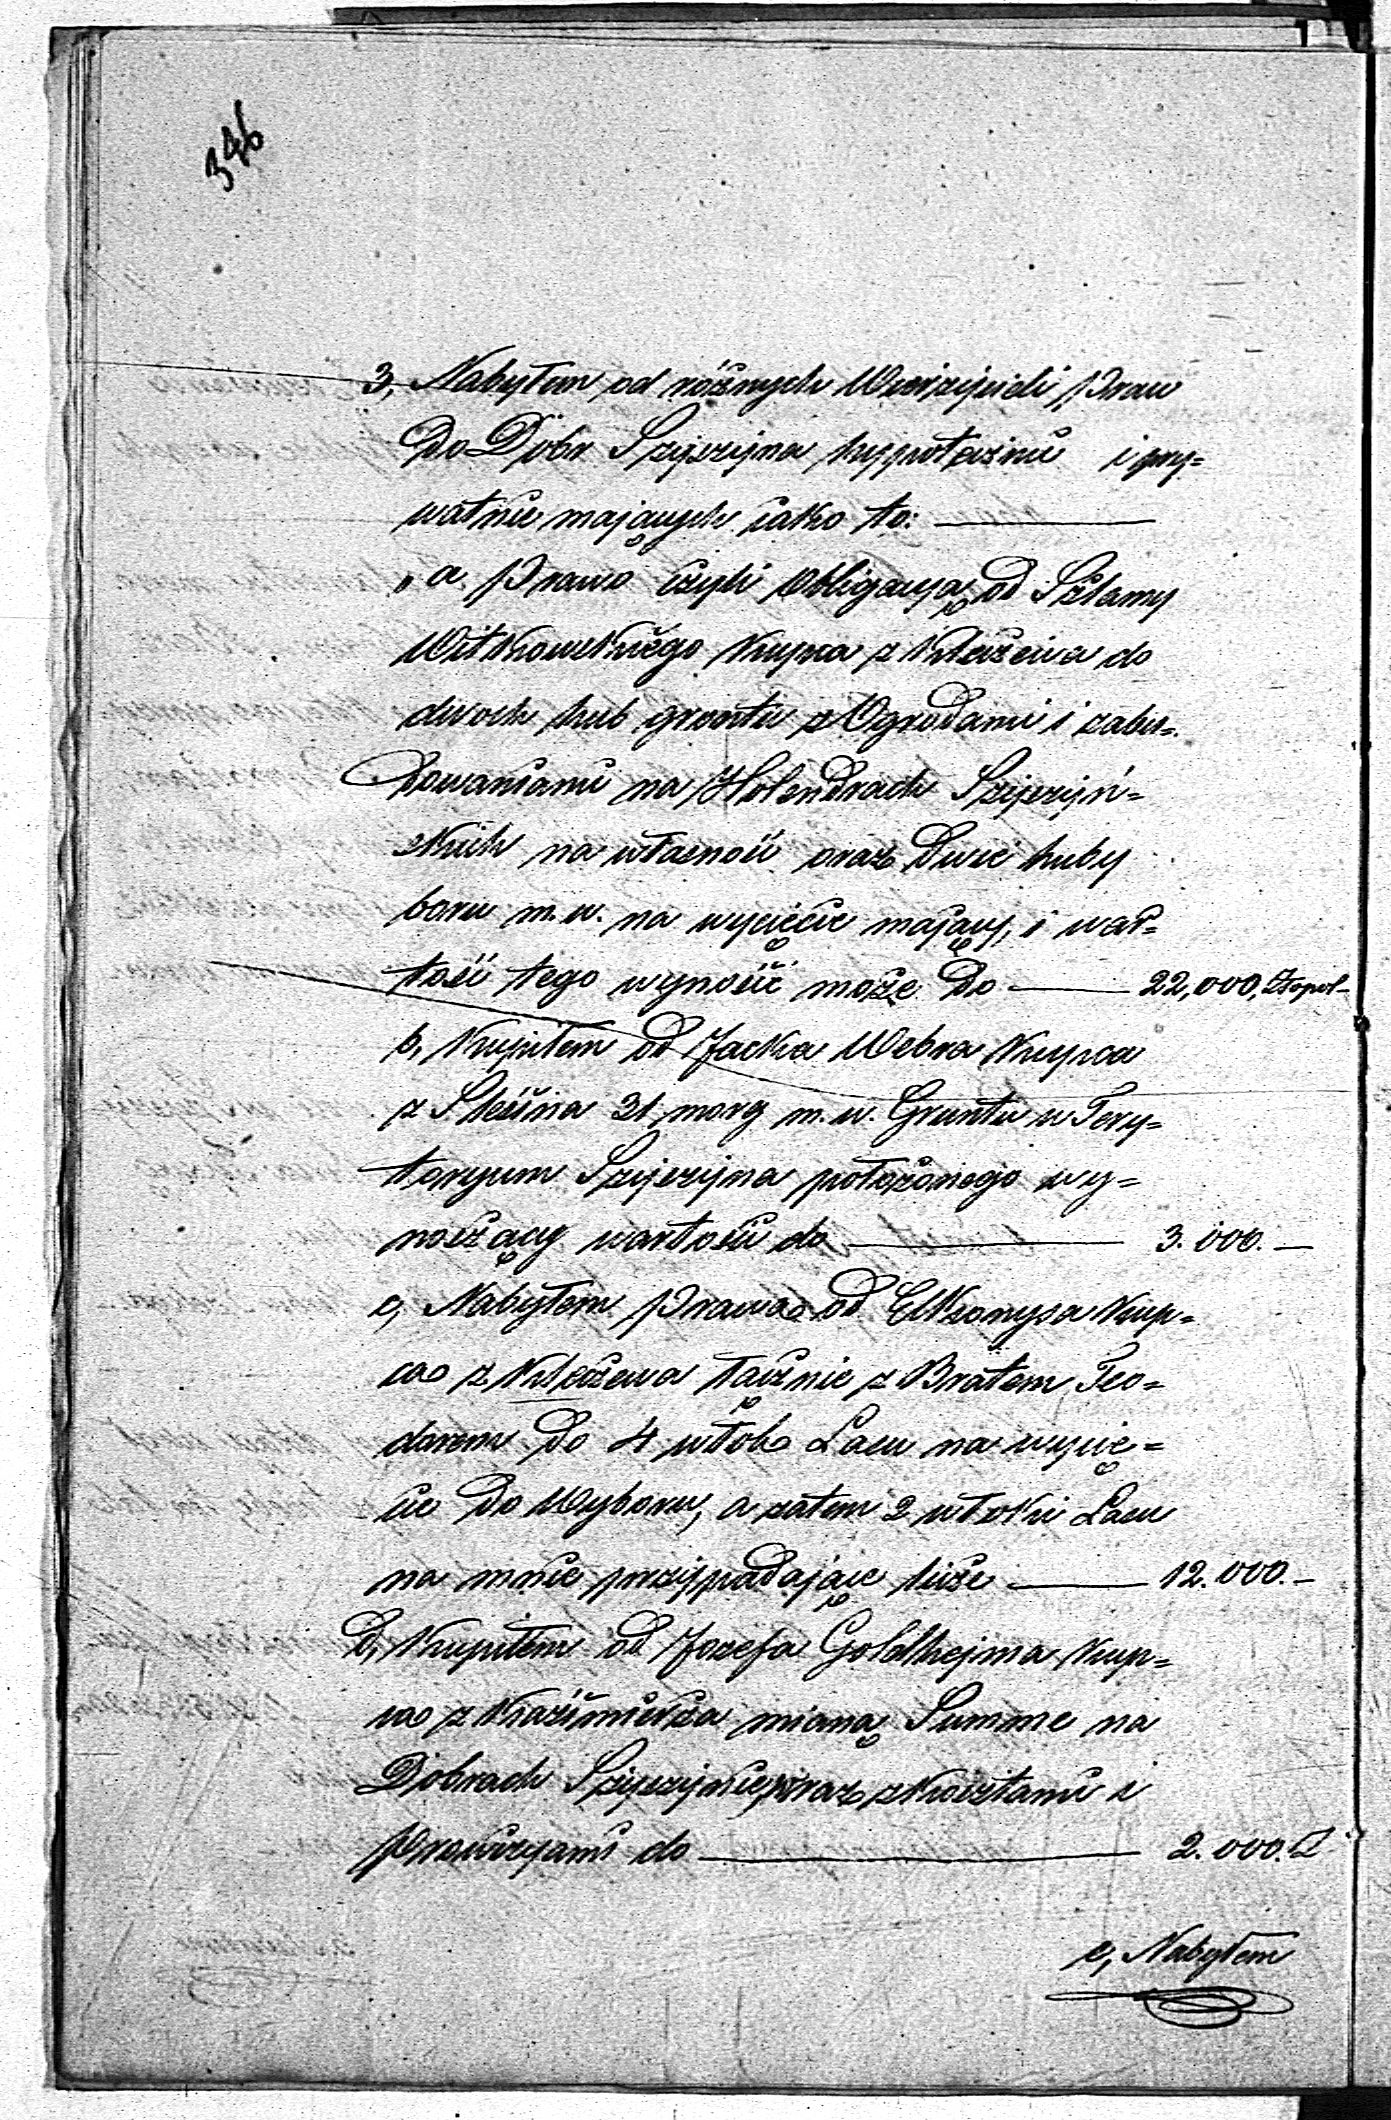 346
3, Nabyłem od różnych Wierzycieli praw
do Dóbr Szyszyna hyppotecznie i pry=
watnie mających iako to:
a. Prawo czyli Obligacyą od Szlamy
Witkowskiego Kupca z Kleczewa do
dwoch hub gruntu z Ogrodami i zabu=
dowaniami na Holendrach Szyszyń=
skich na własność oraz dwie huby
boru m. w. na wycięcie mający, i war=
tość tego wynosić może do — 22,000, Złopol—
b, Kupiłem od Jacka Webra Kupca
z Slesina 31 morg m. w. Gruntu w Tery=
toryum Szyszyna położonego wy=
noszący wartości do — 3.000. —
c, Nabyłem prawa od Elkzonysa Kup=
ca z Kleczewa łącznie z Bratem Teo=
dorem do 4 włok Lasu na wycię=
cie do Wyboru, a zatem 2 włoki Lasu
na mnie przypadające liczę — 12.000. —
d, Kupiłem od Jozefa Goldhejma Kup=
ca z Kaźimierza mianą Summe na
Dobrach Szyszynie, wraz z Kosztami i
Prowizyami do — 2.000. Z
e, Nabyłem